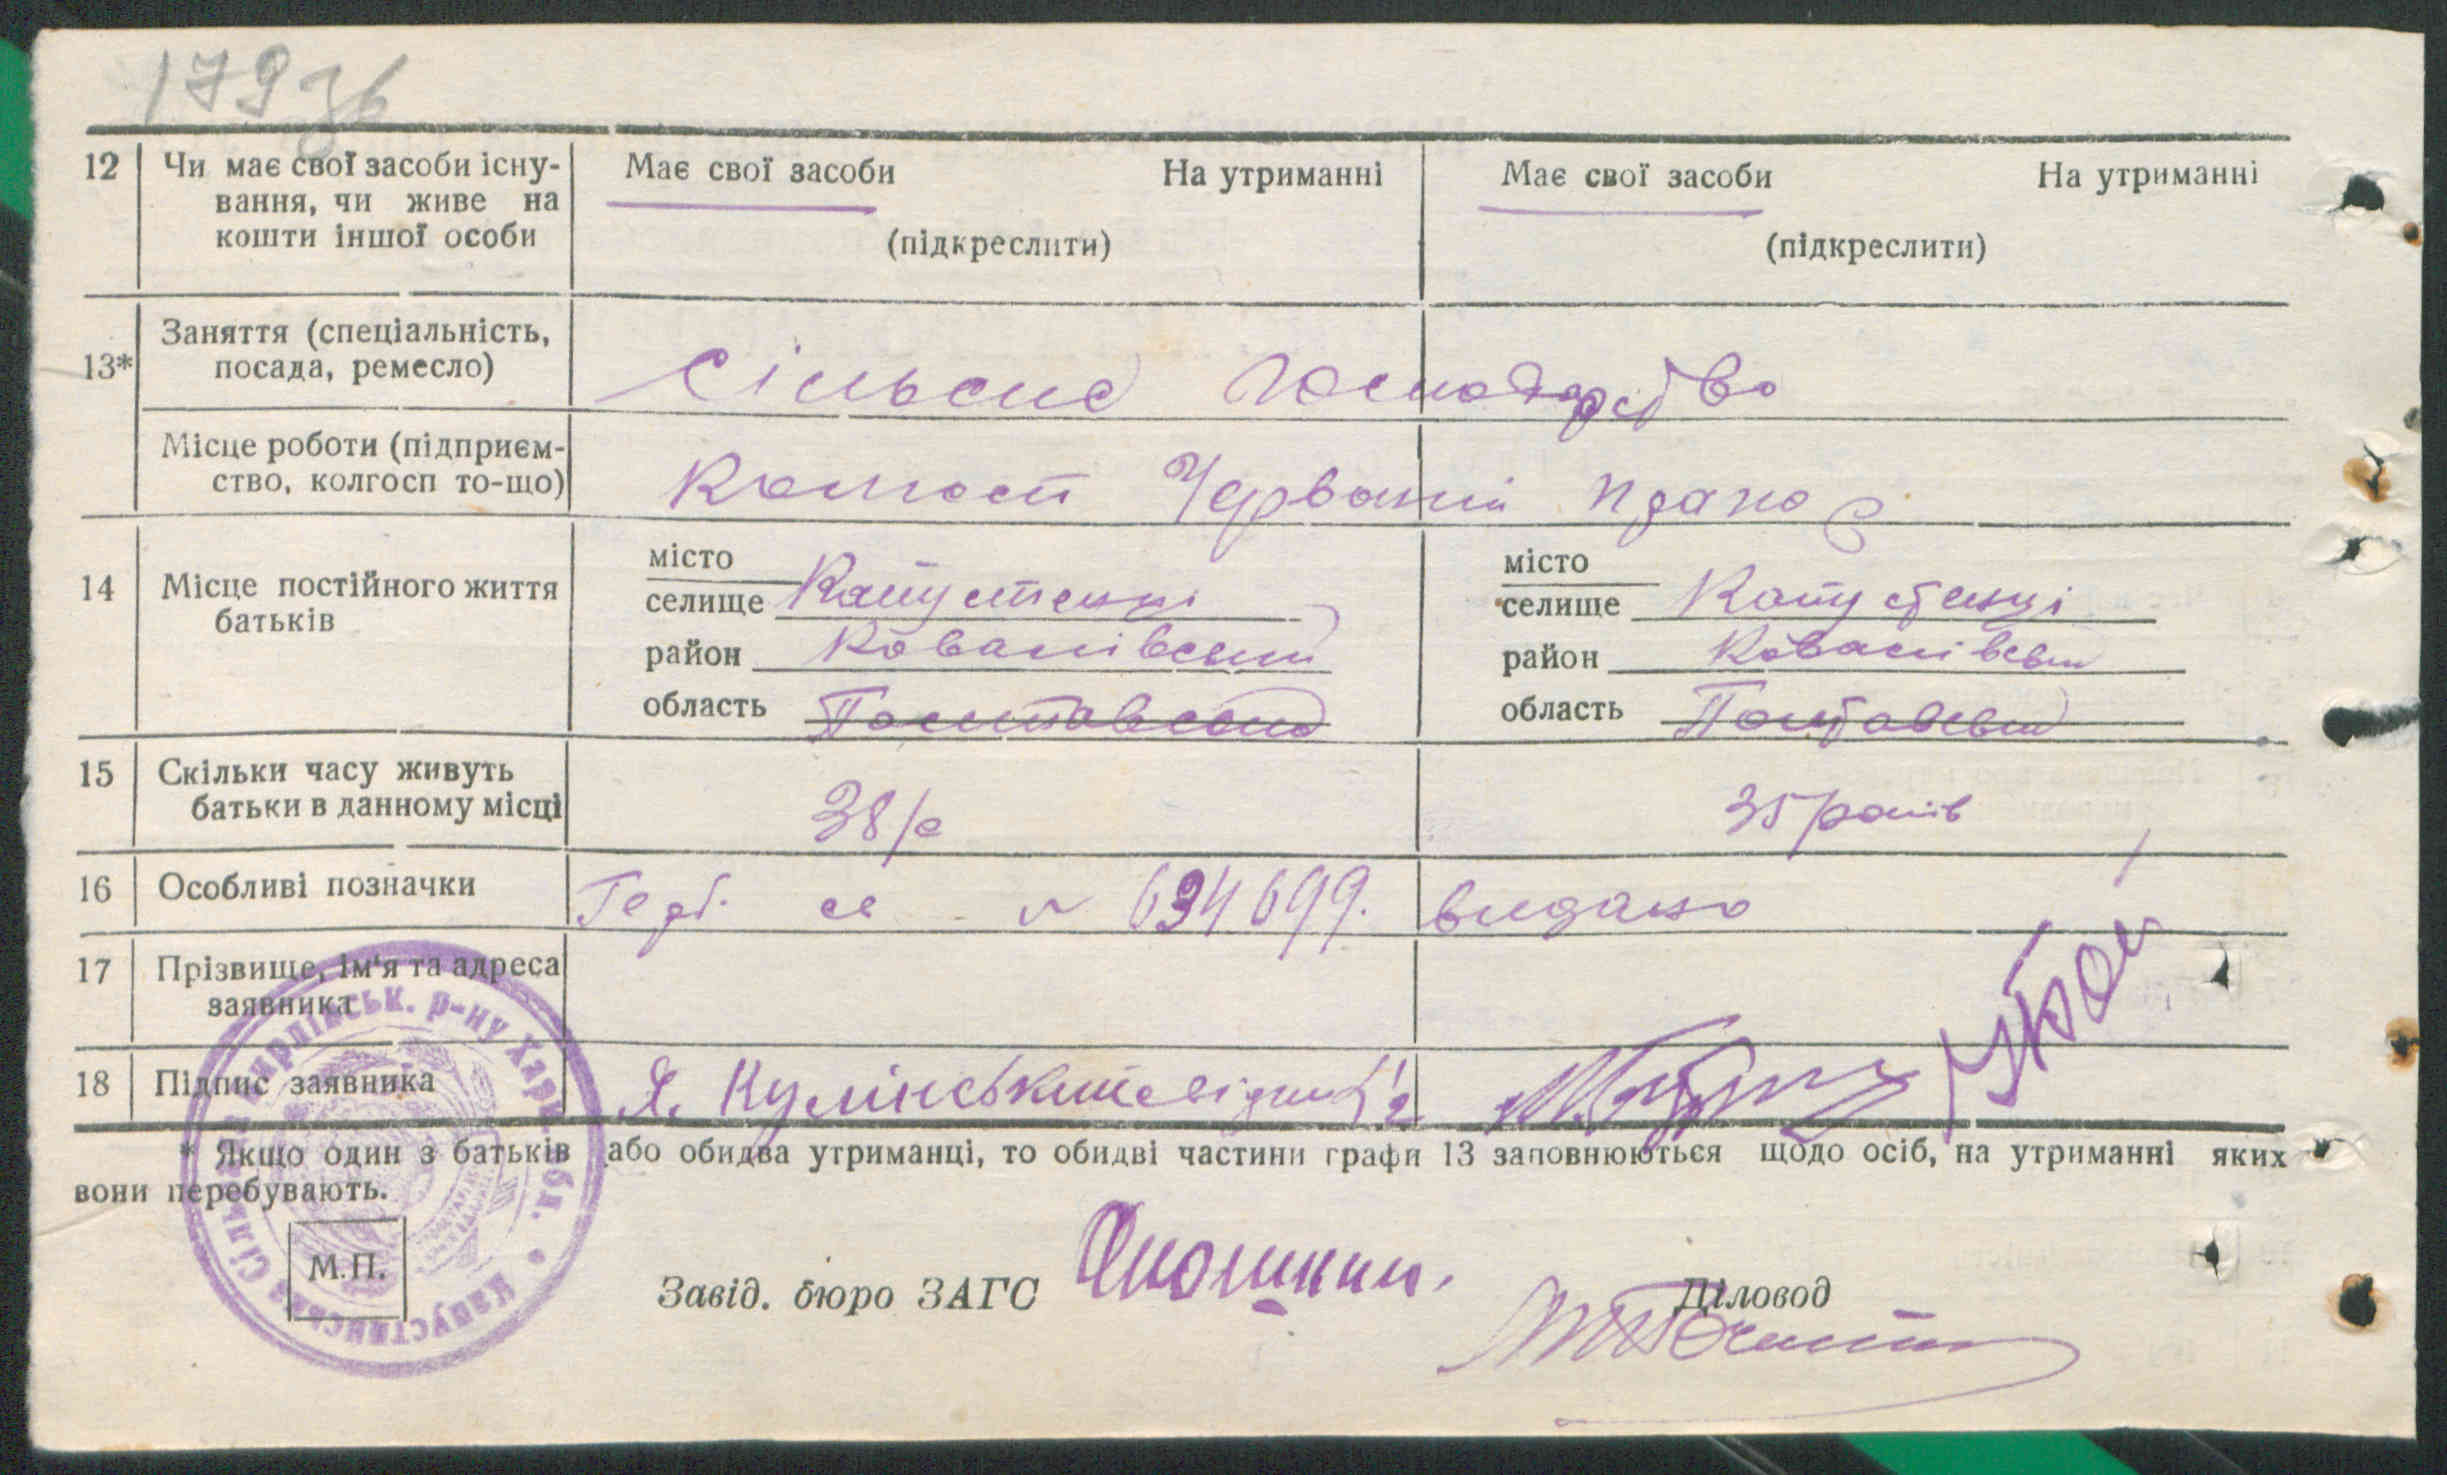 179 зв
12 Чи має свої засоби існу- Має свої засоби На утриманні Має свої засоби На утриманні
вання, чи живе на
кошти іншої особи (підкреслити) (підкреслити)
13* Заняття (спеціальність,
посада, ремесло) Сільське господарство
Місце роботи (підприєм-
ство, колгосп то-що) Колгосп Червоний
14 Місце постійного життя
батьків
місто місто
селище Капустенці селище Капустенці
район район
область Полтавської область Полтавськ
15 Скільки часу живуть
батьки в данному місці 38 р 35 років
16 Особливі позначки Герб. св № 694699. видано
17 Прізвище, ім'я та адреса
заявника
18 Підпис заявника
* Якщо один з батьків або обидва утриманці, то обидві частини графи 13 заповнюються щодо осіб, на утриманні яких
вони перебувають.
М.П.
Завід. бюро ЗАГС Діловод
р-ну Харк. обл. Капустинська Сільська